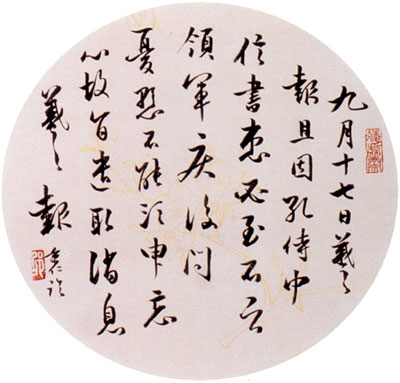 九月十七日羲之
報且因孔侍中
信書想必至不知
領軍疾後問
憂懸不能須臾忘
心故旨遣取消息
羲之報